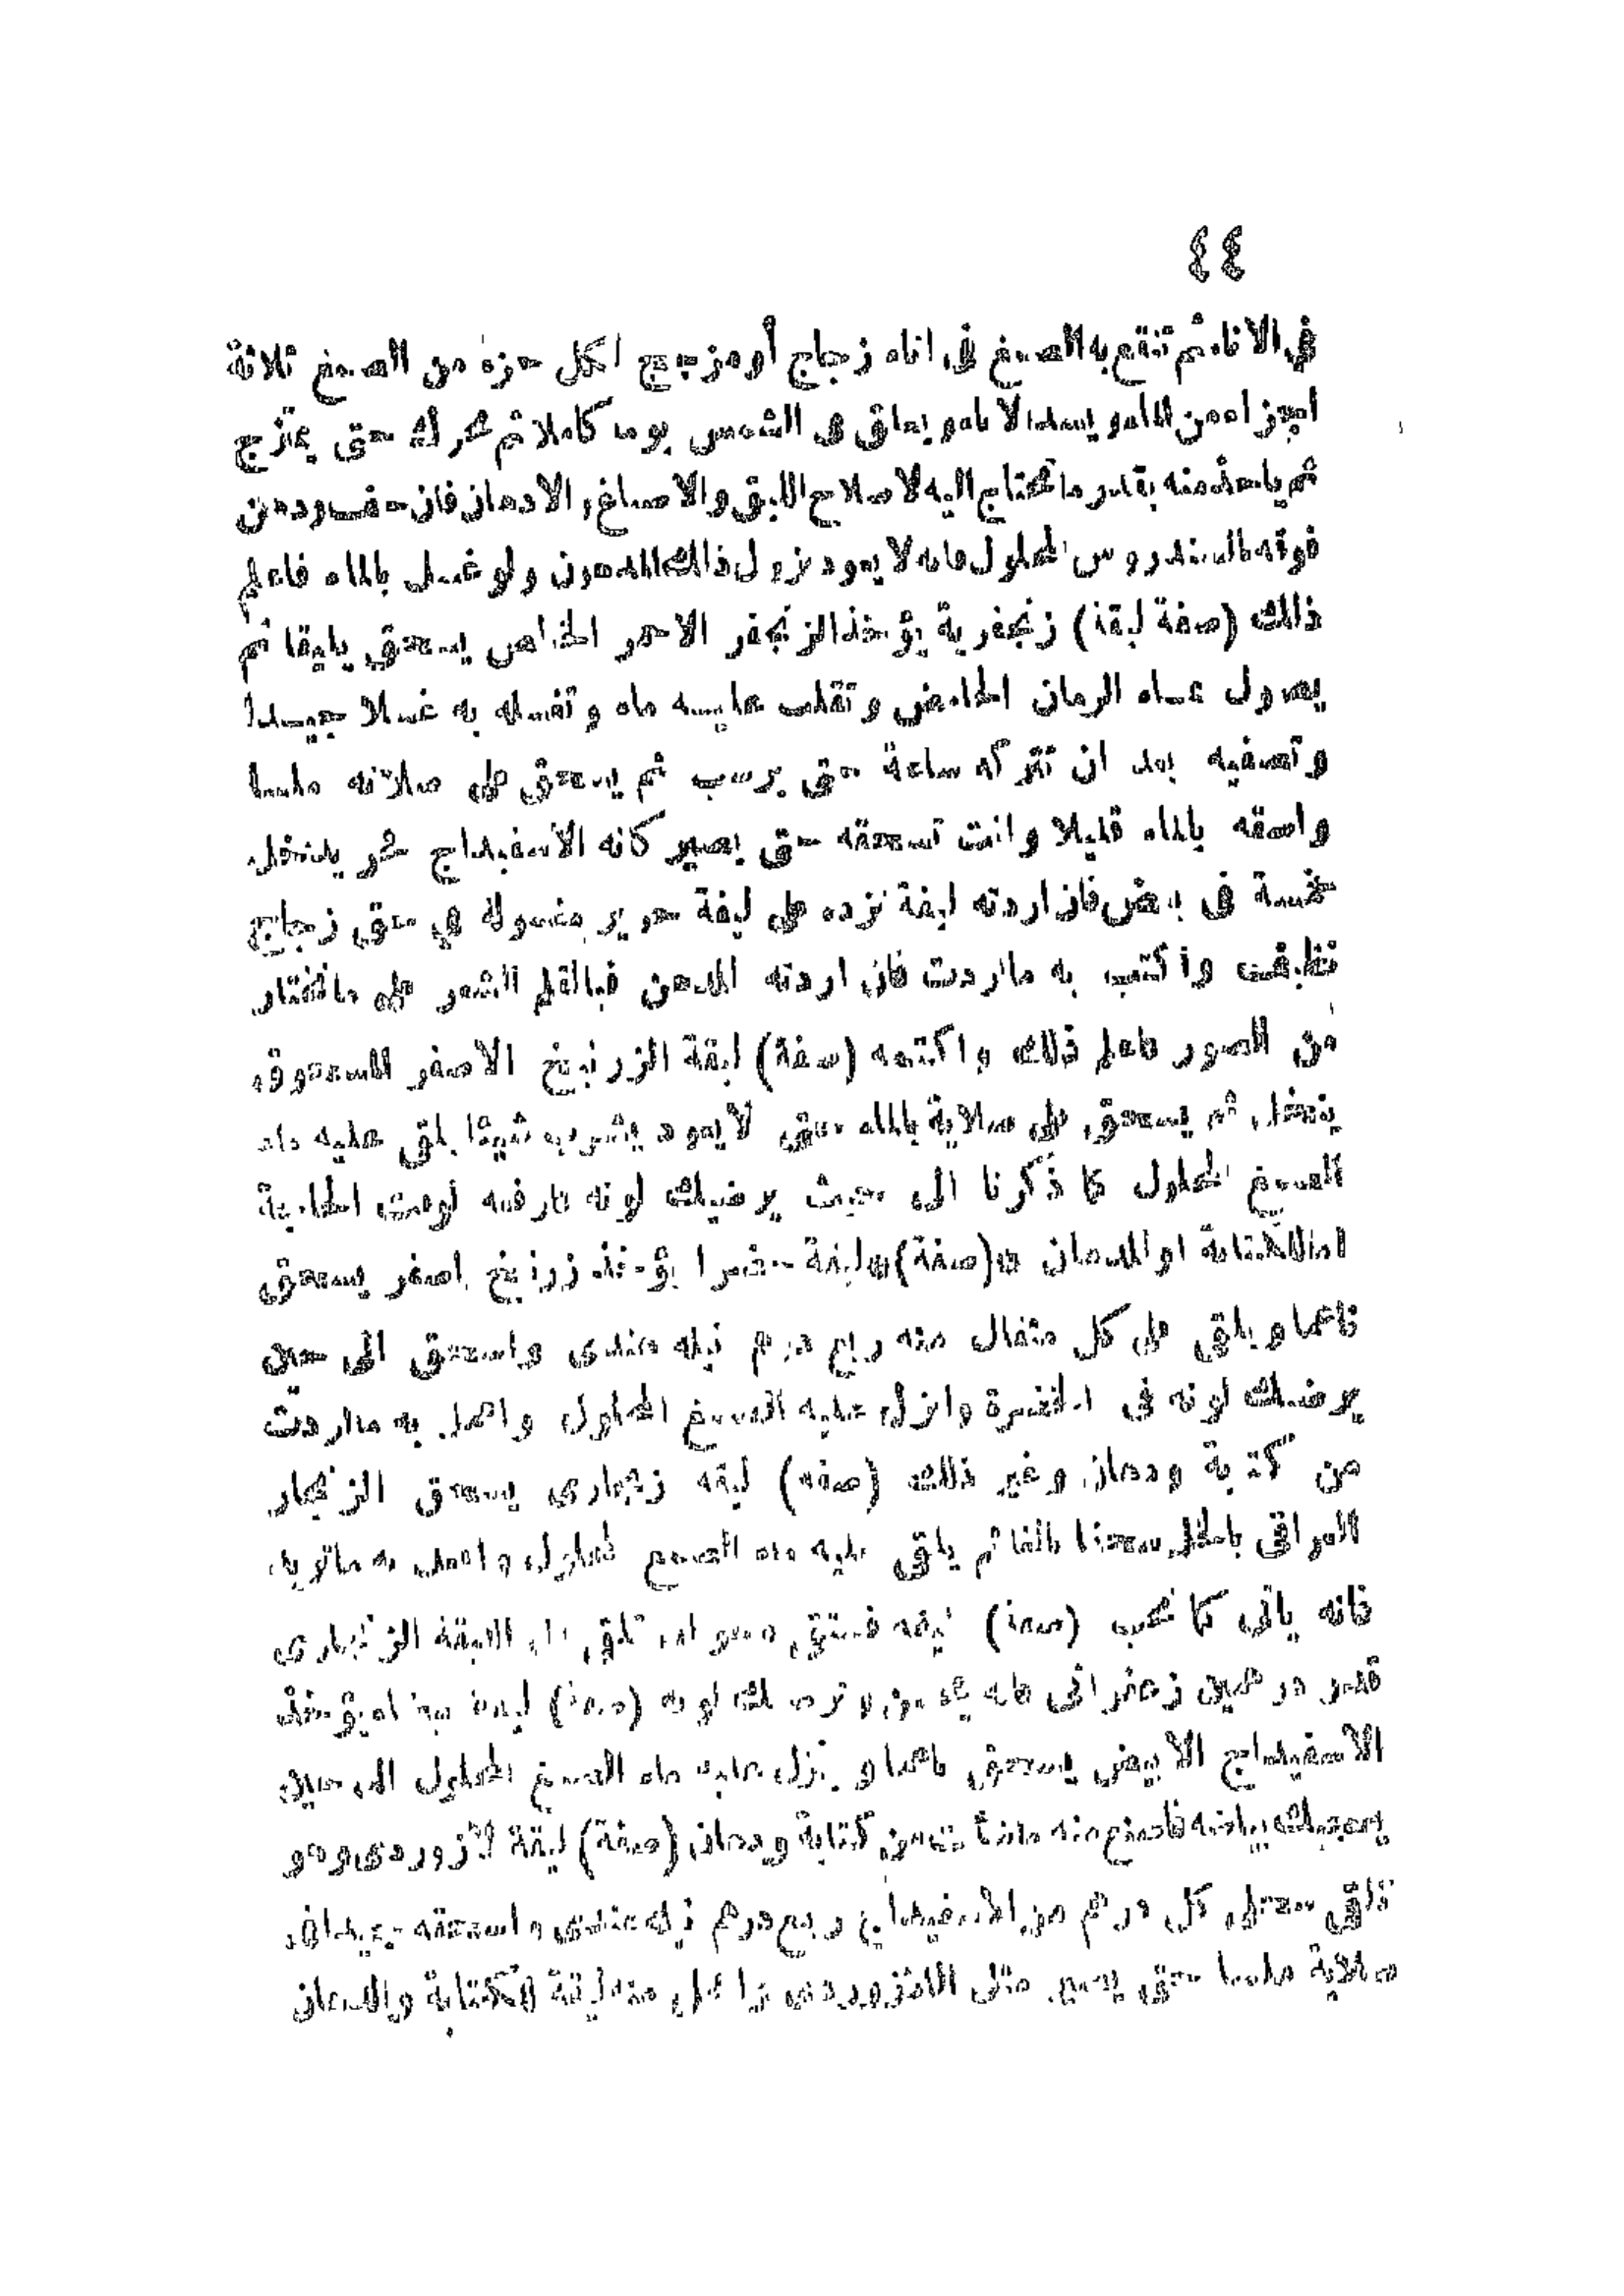 ٤٤
في الاناء ثم تنقع به الصمغ في اناء زجاج أو مزجج لكل جزء من الصمغ ثلاثة
اجزاء من الماء ويسد الاناء ويعلق في الشمس يوما كاملا ثم تحركه حتى يمتزج
ثم ياخذ منه بقدر ما تحتاج اليه لاصلاح الليق والاصباغ والادهان فان جف ودهن
فوقه بالسندروس المحلول فانه لا يعود يزول ذلك المدهون ولو غسل بالماء فاعلم
ذلك (صفة ليقة) زنجفرية يؤخذ الزنجفر الاحمر الخاص يسحق يابقا ثم
يصول بماء الرمان الحامض وتقلب عليه ماء وتغسله به غسلا جيدا
وتصفيه بعد ان تتركه ساعة حتى يرسب ثم يسحق على صلاته ملسا
واسقه بالماء قليلا وانت تسحقه حتى يصير كانه الاسفيداج
خمسة في بعض فان اردته ليقة نزده على ليقة حرير مغسولة في حق زجاج
نظيف واكتب به ما اردت فان اردته للدهن فبالقلم الشعر على ما تختار
من الصور فاعلم ذلك واكتمه (صفة) ليقة الزرنيخ الاصفر المسحوق
ينخل ثم يسحق على صلاية بالماء حتى لا يعود يشرب شيئا يلق عليه ماء
الصمغ المحلول كما ذكرنا الى حيث يرضيك لونه فارفعه لوقت الحاجة
اما للكتابة او للدهان (صفة) ليقة خضرا يؤخذ زرنيخ اصفر يسحق
ناعما ويلقى على كل مثقال منه ربع درهم نيله هندى واسحق الى حين
يرضيك لونه في الخضرة وانزل عليه الصمغ المحلول واعمل به ما اردت
من كتبة ودهان وغير ذلك (صفه) ليقه زنجارى يسحق الزنجار
العراقى بالخل سحقا بالغا ثم يلقى عليه ماء الصمغ المحلول واعمل به ما تريد
فانه ياتى كما تحب (صفة) ليقه فستقى وهو ان تلقى على الليقة الزنجارى
قدر درهمين زعفرانى فانه لونه (صفة) ليقة بيضاء يؤخذ
الاسفيداج الابيض يسحق ناعما وينزل عليه ماء الصمغ المحلول الى حين
يعجبك بياضه فاصنع منه ما شأت من كتابة ودهان (صفة) ليقة لازوردى وهو
تلقى على كل درهم من الاسفيداج ربع درهم نيله هندى واسحقه جيدا في
صلاية ملسا حتى يصير مثل اللازوردى واعمل منه ليقة للكتابة والدهان